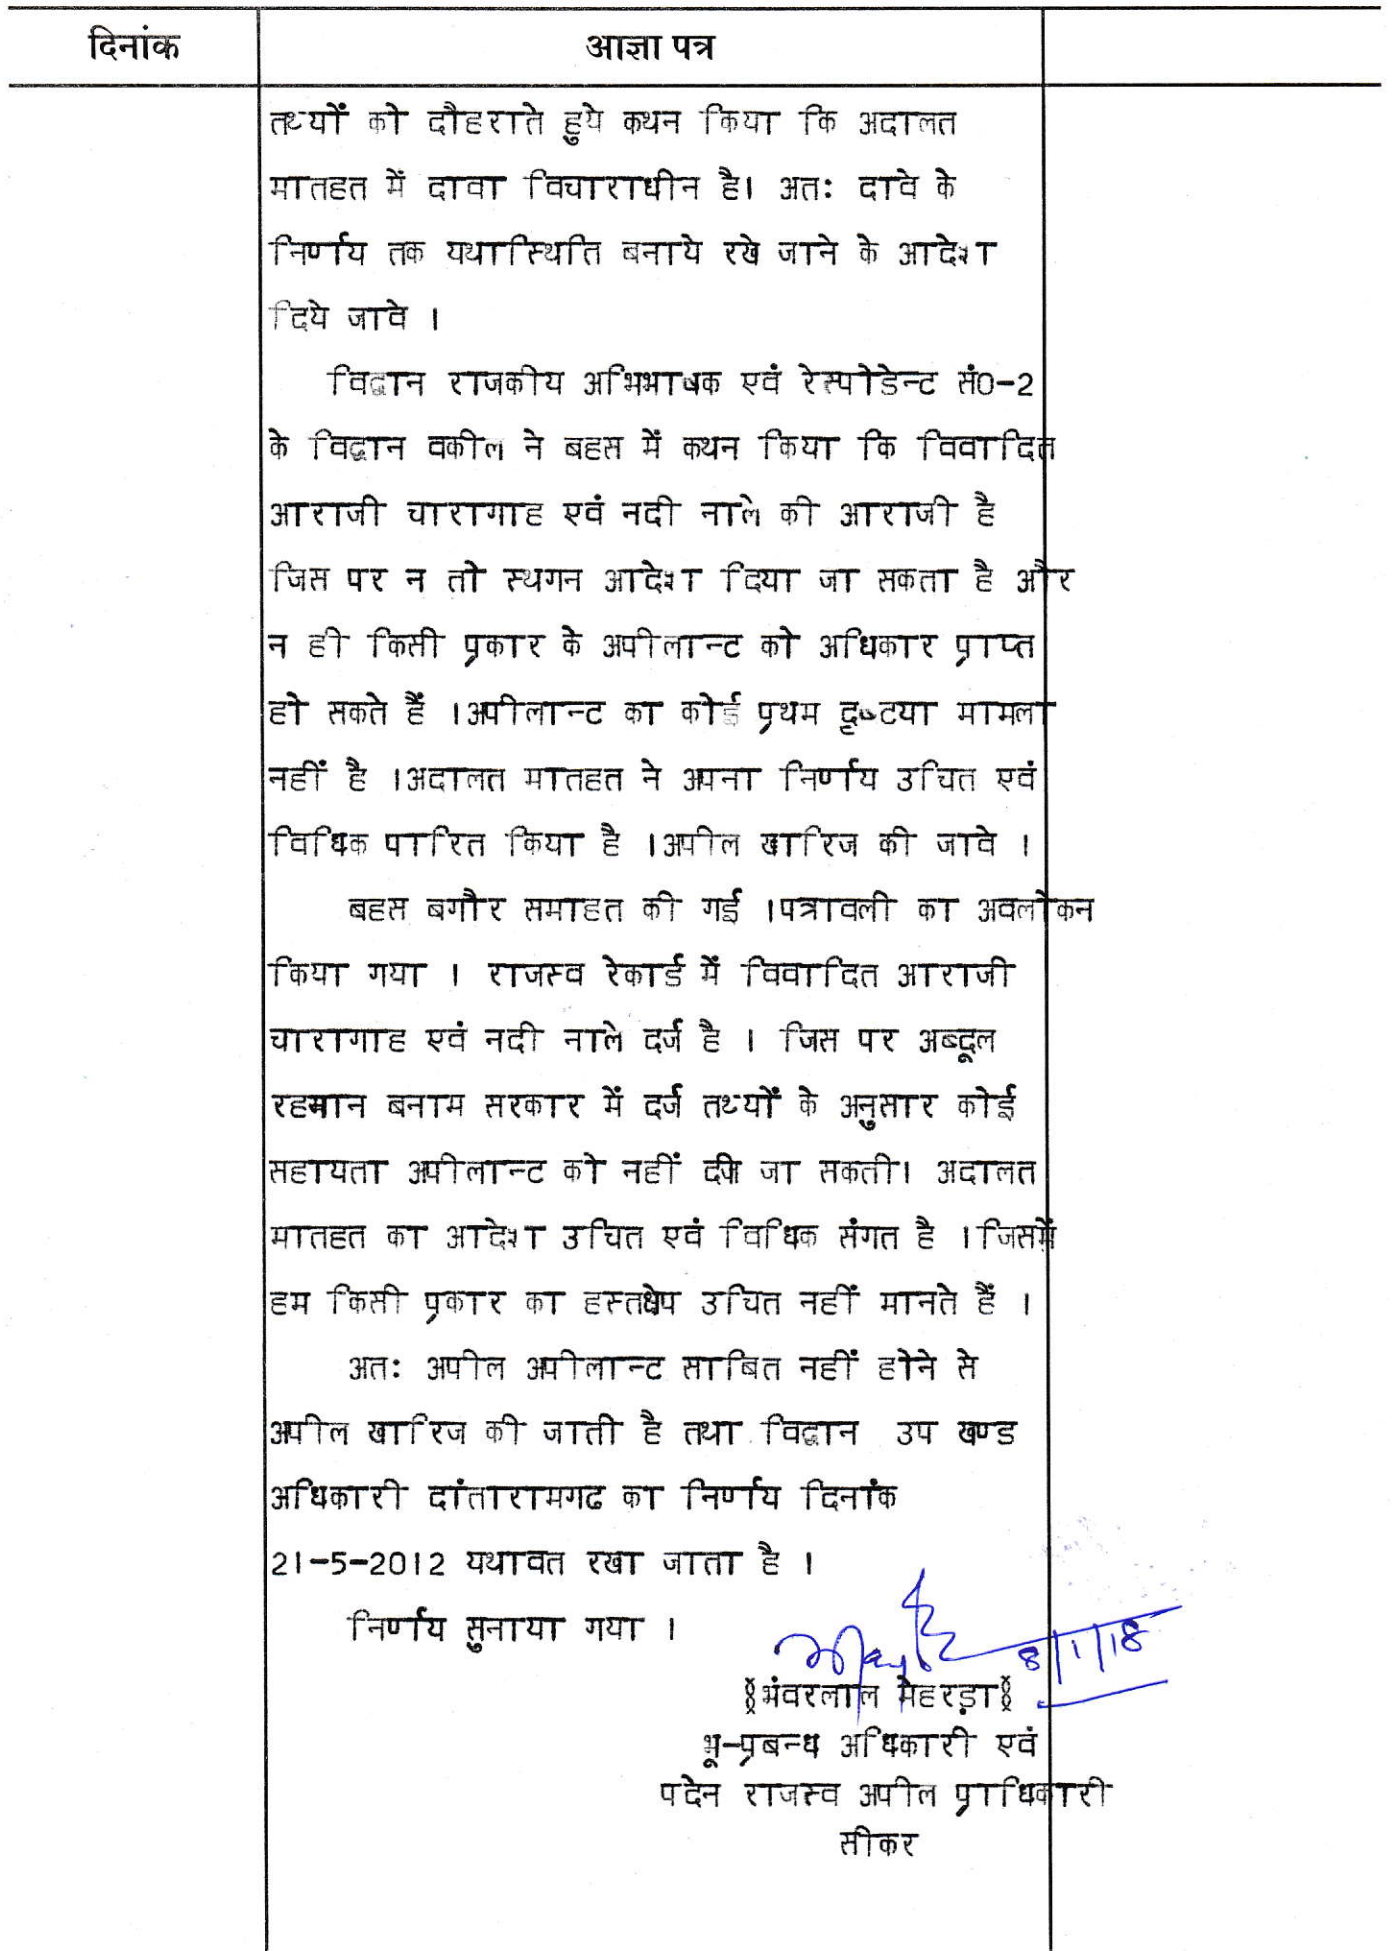 दिनांक आज्ञा पत्र
तथ्यों को दौहराते हुये कथन किया कि अदालत
मातहत में दावा विचाराधीन है। अतः दावे के
निर्णय तक यथास्थिति बनाये रखे जाने के आदेश
दिये जावे ।
विद्वान राजकीय अभिभाषक एवं रेस्पोडेन्ट सं0-2
के विद्वान वकील ने बहस में कथन किया कि विवादित
आराजी चारागाह एवं नदी नाले की आराजी है
जिस पर न तो स्थगन आदेश दिया जा सकता है और
न ही किसी प्रकार के अपीलान्ट को अधिकार प्राप्त
हो सकते हैं ।अपीलान्ट का कोई प्रथम दृष्टया मामला
नहीं है ।अदालत मातहत ने अपना निर्णय उचित एवं
विधिक पारित किया है ।अपील खारिज की जावे ।
बहस बगौर समाहत की गई ।पत्रावली का अवलोकन
किया गया । राजस्व रेकार्ड में विवादित आराजी
चारागाह एवं नदी नाले दर्ज है । जिस पर अब्दूल
रहमान बनाम सरकार में दर्ज तथ्यों के अनुसार कोई
सहायता अपीलान्ट को नहीं दी जा सकती। अदालत
मातहत का आदेश उचित एवं विधिक संगत है ।जिसमें
हम किसी प्रकार का हस्तक्षेप उचित नहीं मानते हैं ।
अतः अपील अपीलान्ट साबित नहीं होने से
अपील खारिज की जाती है तथा विद्वान उप खण्ड
अधिकारी दांतारामगढ का निर्णय दिनांक
21-5-2012 यथावत रखा जाता है ।
निर्णय सुनाया गया ।
8/1/18
§भंवरलाल मेहरड़ा§
भू-प्रबन्ध अधिकारी एवं
पदेन राजस्व अपील प्राधिकारी
सीकर